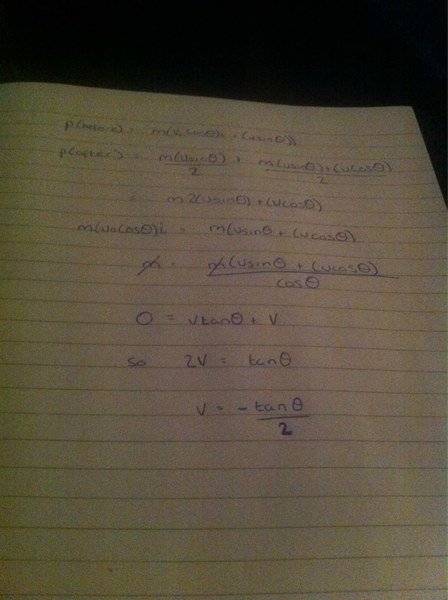 p(before) = m(v₀cosθ)i + (usinθ)j
p(after) = m(usinθ)/2 + m(usinθ)+(ucosθ)/2
= m2(usinθ)+(vcosθ)
m(v₀cosθ)i = m(usinθ + (ucosθ)
m = m(usinθ + (ucosθ)/cosθ
0 = vtanθ + v
so 2v = tanθ
v = - tanθ/2